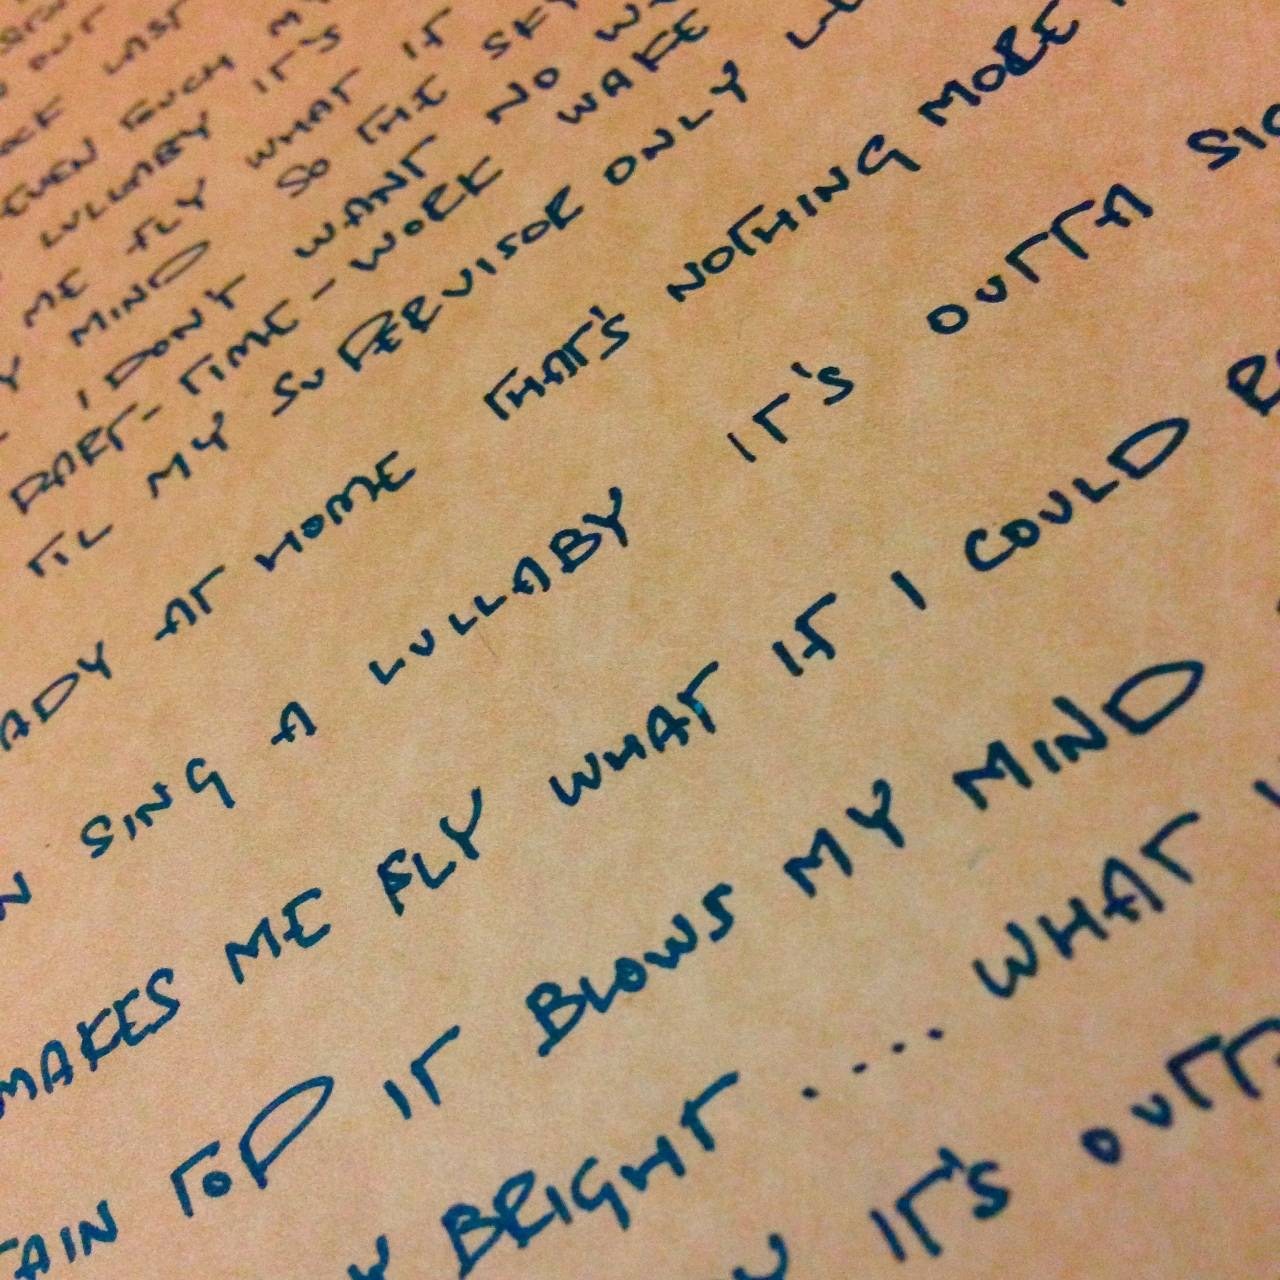 OUT
LAST
EVEN SUCH MY
LULLABY IT'S
ME FLY WHAT IF
Y MIND SO THE SKY
I DON'T WANT NO
PART-TIME-WORK WAKE
TIL MY SUPERVISOR ONLY
ADY AT HOME THAT'S NOTHING MORE
N SING A LULLABY IT'S OUTTA SIG
MAKES ME FLY WHAT IF I COULD
TAIN TOP IT BLOWS MY MIND
Y BRIGHT .... WHAT
IT'S OUTT